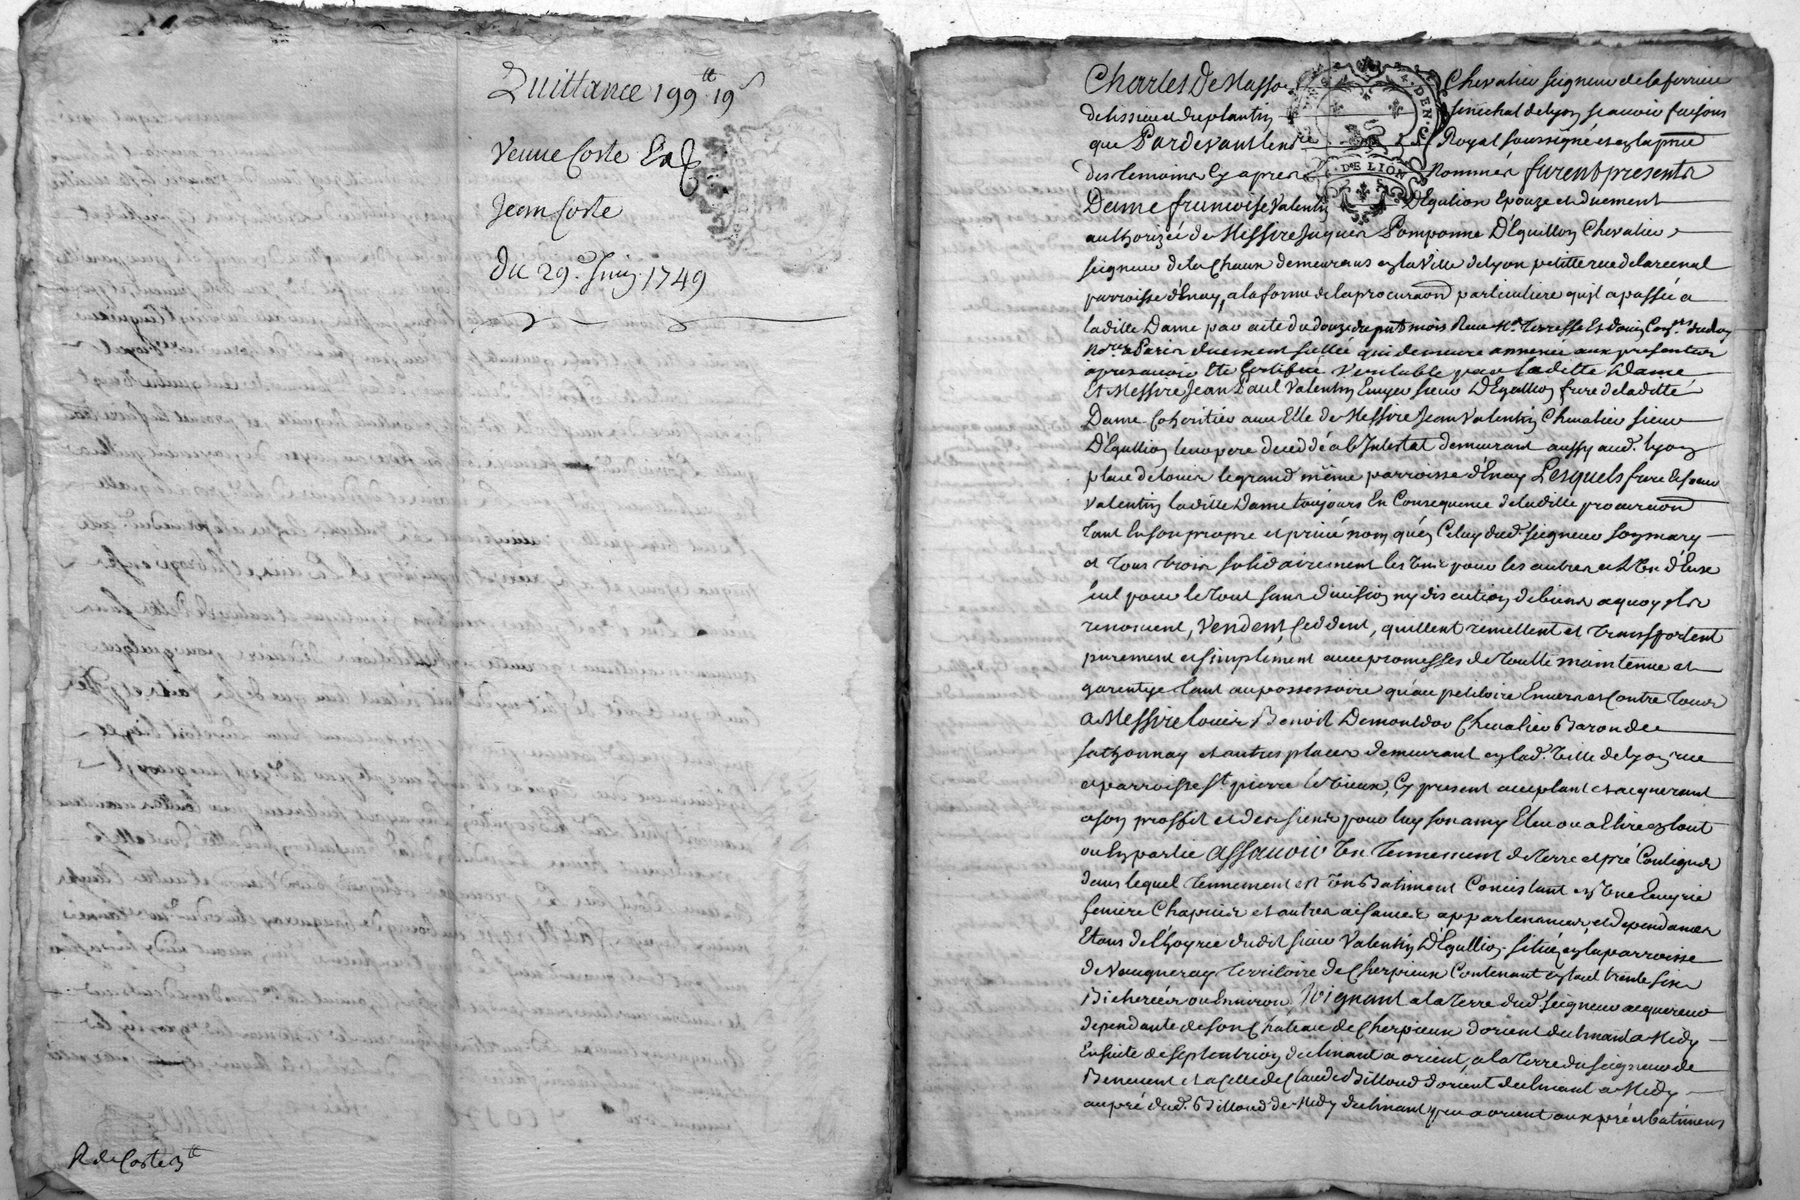 Quittance 199ᵗᵗ 19ˢ
Veuve Coste
Jean Coste
Du 29ᵉ Juin 1749
R de Coste 3ᵗᵗ
Charles De Masso Chevalier seigneur de la ferriere
de lissieu et du plantin senechal de lyon scavoir faisons
que Pardevant le no Royal soussigné et en la pnce
des temoins cy apres nommés furent presents
Dame francoise Valentin D'Egulion Epouze et duement
authorizée de Messire Jaques Pomponne D'Eguillon Chevalier
seigneur de la Chaux demeurans en la Ville de lyon petitte rue de larcenal
parroisse d'Enay, a la forme de la procuraon particuliere qu'il a passée a
laditte Dame par acte du douze du pnt mois Reçu Mᵉ Terresse Et Doüin Conˢ du Roy
Noʳᵉˢ a Paris duement scellée qui demeure annexée aux presentes
apres avoir Eté Certifiée Veritable par laditte Dame
Et Messire Jean Paul Valentin Ecuyer sieur D'Egullion frere de laditte
Dame Coheritier avec Elle de Messire Jean Valentin Chevalier sieur
D'Egullion leur pere decedé ab Intestat demeurant aussy aud. lyon
place de louis le grand même parroisse d'Enay Lesquels frere et soeur
Valentin laditte Dame toujours En Consequence de laditte procuraon
tant En son propre et privé nom qu'en Celuy dud. seigneur son mary
et Tous trois solidairement les Uns pour les autres et L'Un d'Eux
seul pour le tout sans division ny discution de biens a quoy ils
renoncent, Vendent, Ceddent, quittent remettent et transportent
purement et simplement avec promesses de toutte maintenue et
garentye tant au possessoire qu'au petitoire Envers et Contre Tous
a Messire louis Benoit Demontdor Chevalier Baron de
sathonnay et autres places demeurant en lad. Ville de lyon rue
et parroisse Sᵗ pierre le Vieux, Cy present acceptant et acquerant
a son proffit et des siens pour luy son amy Elu ou a Elire en tout
ou En partie Assavoir Un Tennement de Terre et pré Contigus
dans lequel Tennement est Un Batiment Concistant en Une Ecuyrie
feniere Chapuis et autres aisances appartenances, et dependances
Etans de l'hoyrie dudit sieur Valentin D'Egullion situé en la parroisse
de Vaugneray Territoire de Cherpieux Contenant en tout trente six
Bicherées ou Environ Joignant a la Terre dud. seigneur acquereur
dependante de son Château de Cherpieux d'orient declinant a Midy
Ensuite de septentrion declinant a orient, a la Terre du seigneur de
Benevent et a Celle de Claude Billoud d'orient declinant a Midy
au pré dud. Billoud de Midy declinant peu a orient aux pré et batimens